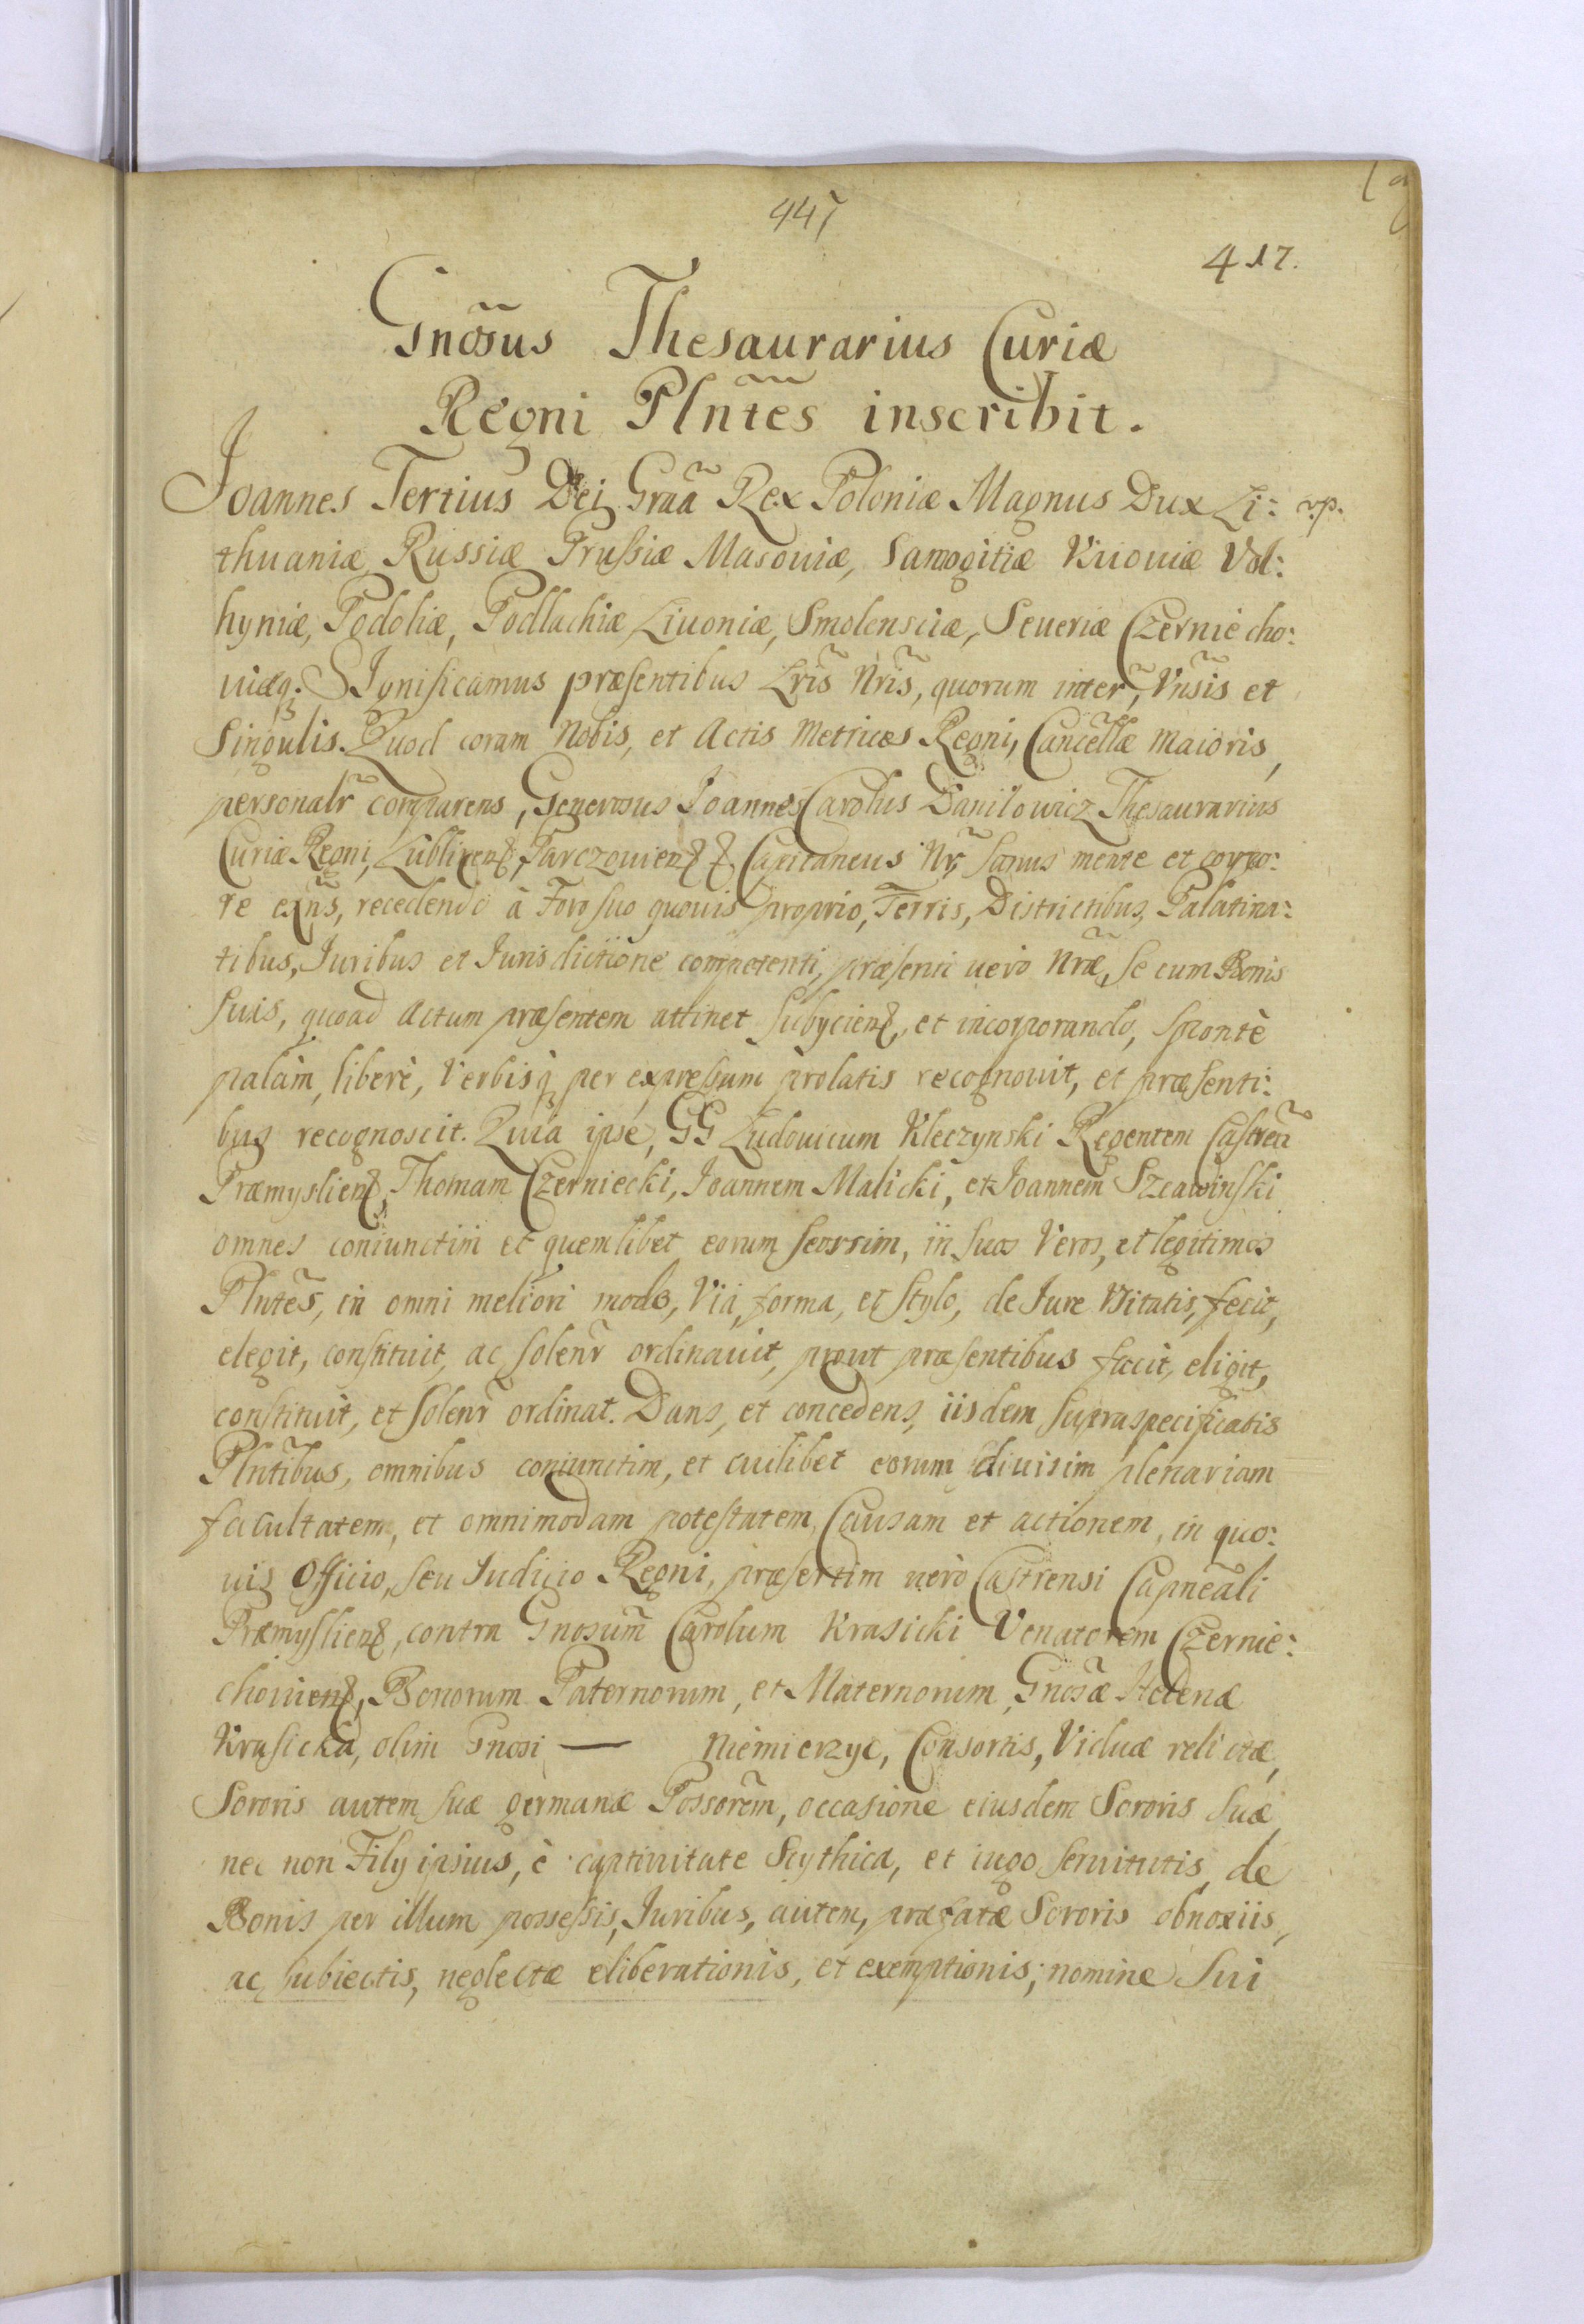 447
417.
Gnosus Thesaurarius Curiæ
Regni Plntes inscribit.
Joannes Tertius Dei Graa Rex Poloniæ Magnus Dux Li:
thuaniæ Russiæ Prussiæ Masouiæ, Samogitiæ Kiiouiæ Vol:
hyniæ, Podoliæ, Podlachiæ Liuoniæ, Smolensciæ, Seueriæ Czerniecho:
uiæq. SIgnificamus præsentibus Lris Nris, quorum inter, Vnsis et
Singulis. Quod coram Nobis, et Actis Metrices Regni, Cancellæ Maioris,
personalr comparens, Generosus Joannes Carolus Danilowicz Thesaurarius
Curiæ Regni, Lublinen, Parczouien Capitaneus Nr, Sanus mente et corpo:
re exns, recedendo à Foro suo quouis proprio, Terris, Districtibus, Palatina:
tibus, Juribus et Jurisdictione competenti, præsenti uero Nræ, se cum Bonis
suis, quoad Actum præsentem attinet subycien, et incorporando, spontè
palàm, liberè, Verbisq per expressum prolatis recognouit, et præsenti:
bus recognoscit. Quia ipse, GG Ludouicum Kleczynski Regentem Castren
Præmyslien, Thomam Czerniecki, Joannem Malicki, et Joannem Szcawinski
omnes coniunctim et quemlibet eorum seorsim, in suos Veros, et legitimos
Plntes, in omni meliori modo, Via, forma, et stylo, de Jure Vsitatis, fecit,
elegit, constituit, ac solenr ordinauit, prout præsentibus facit, eligit,
constituit, et solenr ordinat. Dans, et concedens, iisdem supraspecificatis
Plntibus, omnibus coniunctim, et cuilibet eorum diuisim plenariam
facultatem, et omnimodam potestatem, Causam et actionem, in quo:
uis Officio, seu Judicio Regni, præsertim uerò Castrensi Capneali
Præmyslien, contra Gnosum Carolum Krasicki Venatorem Czernie:
chouien, Bonorum Paternorum, et Maternorum, Gnosæ Helenæ
Krasicka, olim Gnosi — Niemierzyc, Consortis, Viduæ relictæ,
Sororis autem suæ germanæ Possorem, occasione eiusdem Sororis suæ,
nec non Fily ipsius, è captiuitate Scythica, et iugo seruitutis, de
Bonis per illum possessis, Juribus, autem, præfatæ Sororis obnoxiis,
ac subiectis, neglectæ eliberationis, et exemptionis; nomine sui